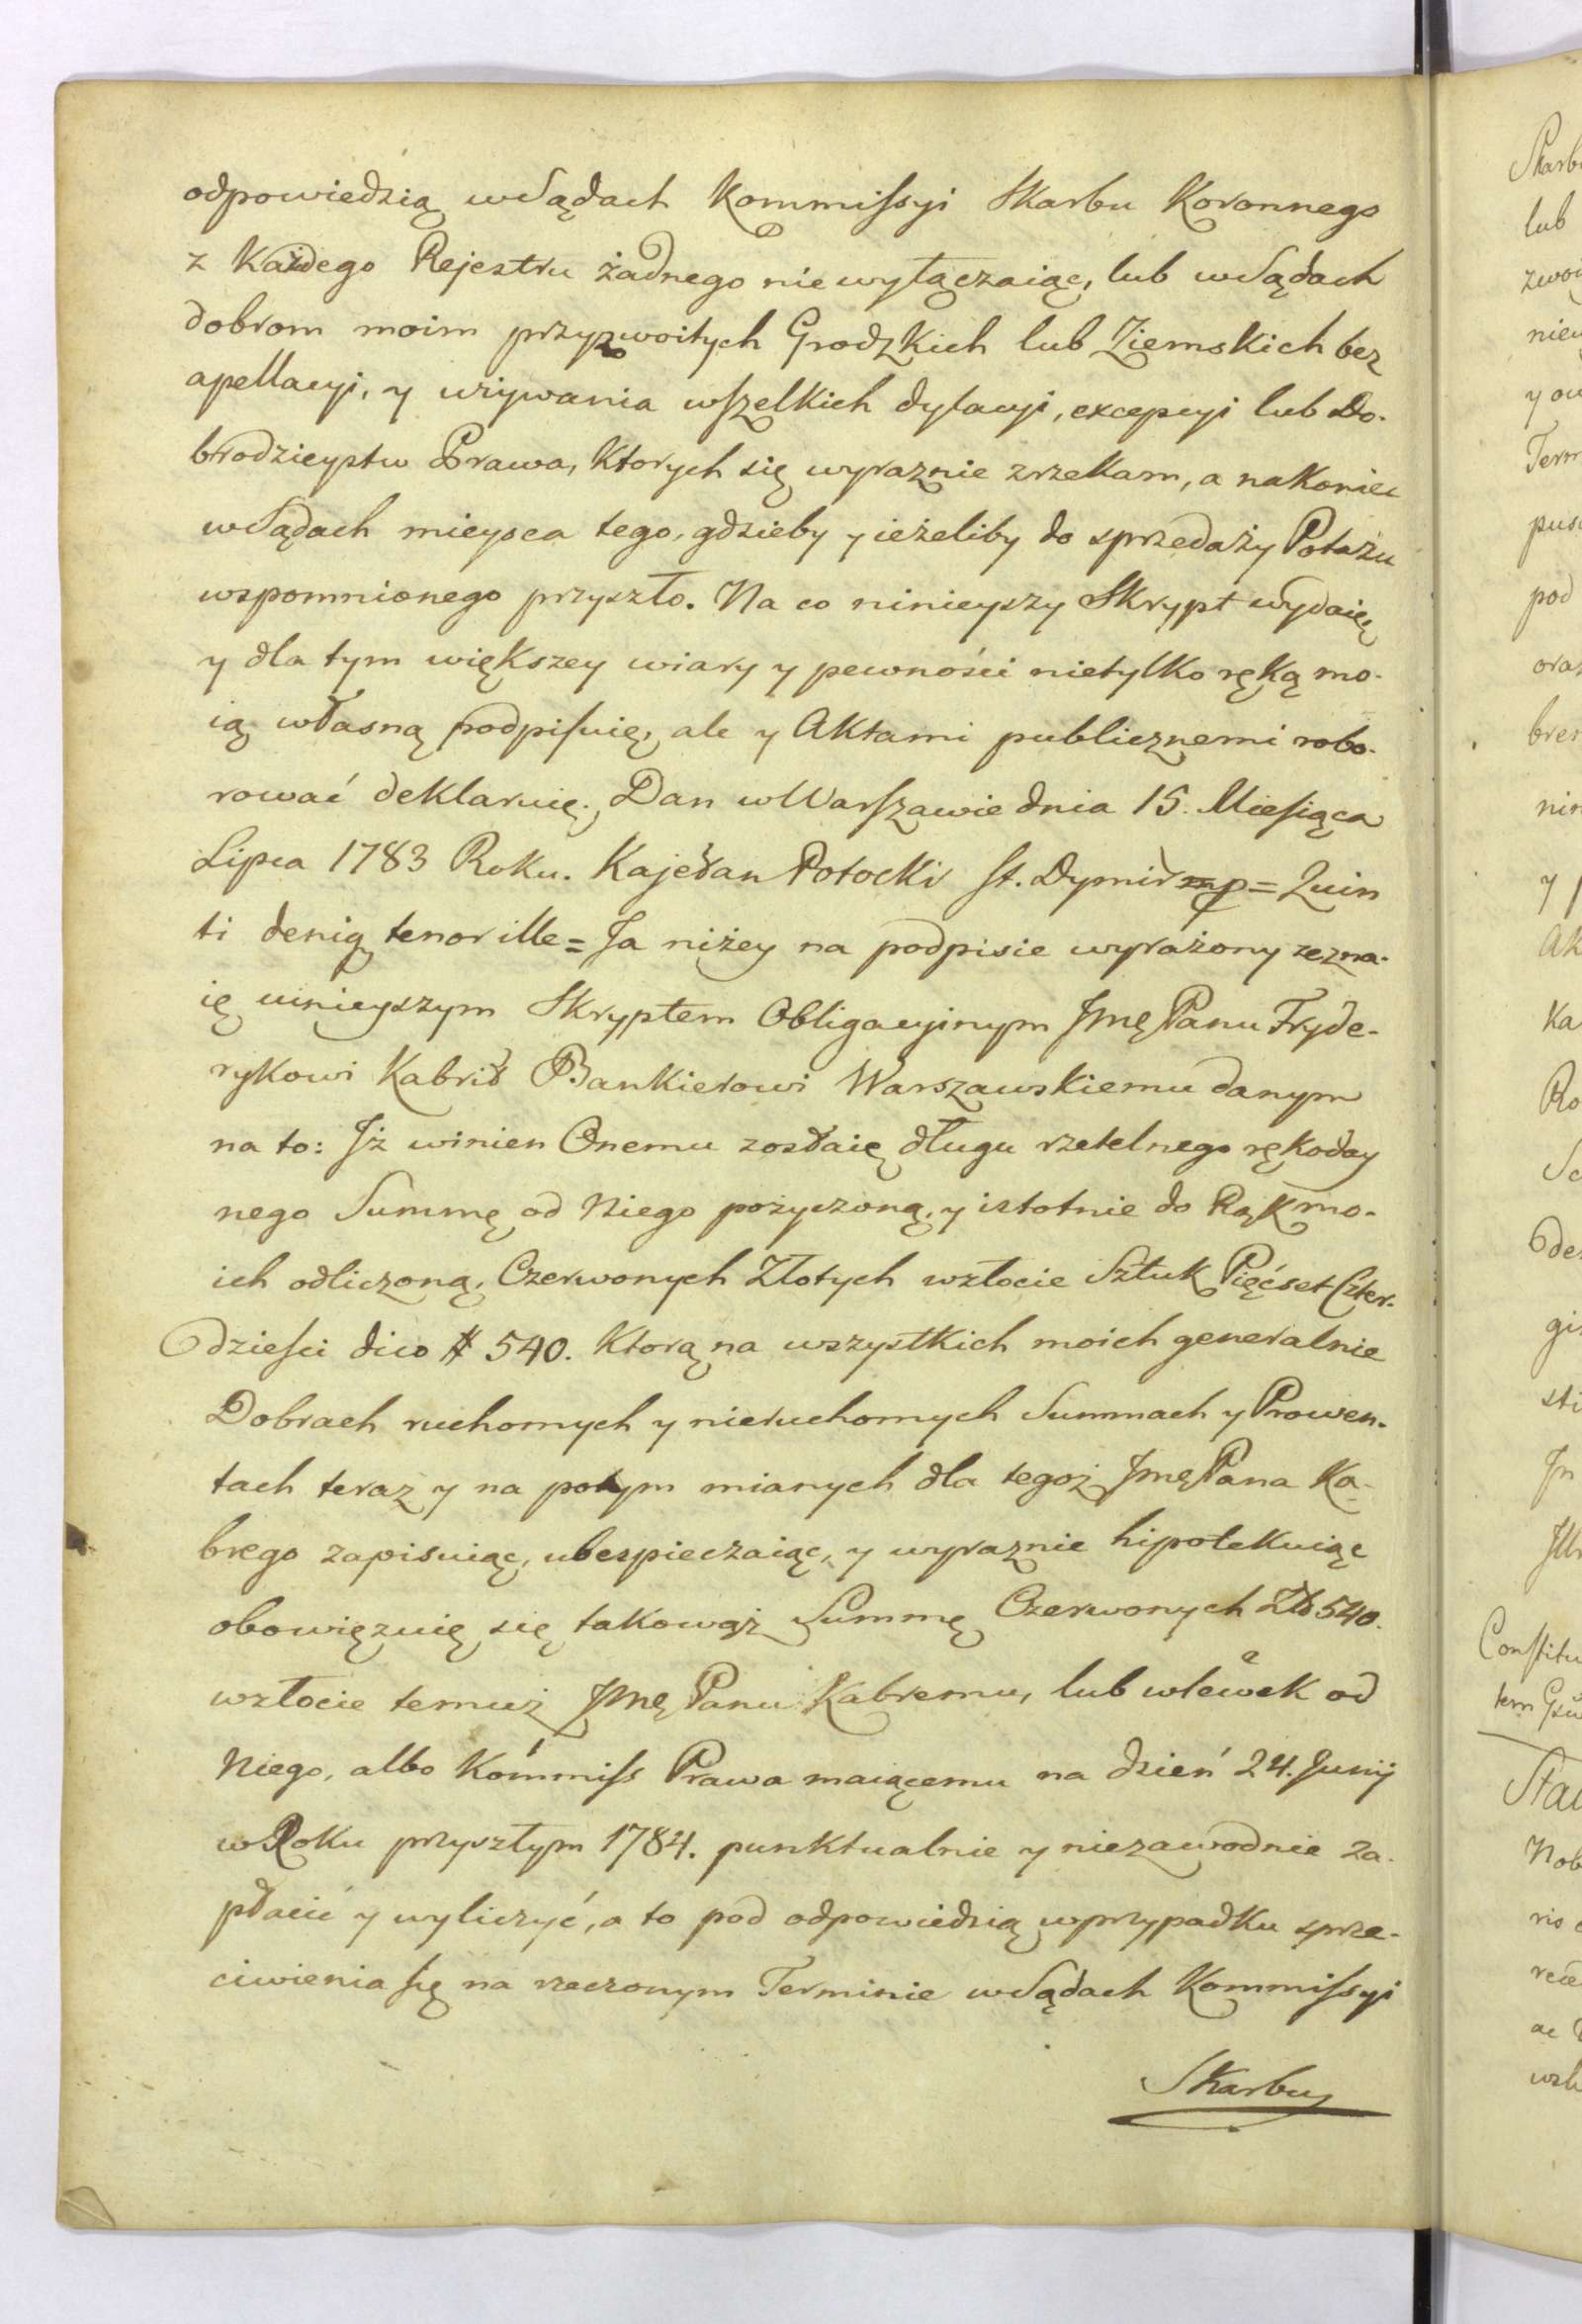 odpowiedzią w Sądach Kommissyi Skarbu Koronnego
z Każdego Rejestru żadnego nie wyłączaiąc, lub w Sądach
dobrom moim przyzwoitych Grodzkich lub Ziemskich bez
apellacyi, y używania wszelkich dylacyi, excepcyi lub Do-
brodzieystw Prawa, Ktorych się wyraznie zrzekam, a nakoniec
w Sądach mieysca tego, gdzieby y ieżeliby do sprzedaży Potażu
wspomnionego przyszło. Na co ninieyszy Skrypt wydaię
y dla tym większey wiary y pewności nietylko ręką mo-
ią własną podpisuię, ale y Aktami publicznemi robo-
rować deklaruię. Dan w Warszawie dnia 15. Miesiąca
Lipca 1783 Roku. Kajetan Potocki St. Dymir mp = Quin
ti deniq tenor ille = Ja niżey na podpisie wyrażony zezna-
ię ninieyszym Skryptem Obligacyinym Jmę Panu Fryde-
rykowi Kabrit Bankierowi Warszawskiemu danym
na to: Iż winien Onemu zostaię długu rzetelnego rękoday
nego Summę od Niego pożyczoną, y istotnie do Rąk mo-
ich odliczoną, Czerwonych Złotych w złocie Sztuk Pięćset Czter-
dziesci dico # 540. Ktorą na wszystkich moich generalnie
Dobrach ruchomych y nieruchomych Summach y Prowen-
tach teraz y na potym mianych dla tegoż Jmę Pana Ka-
brego zapisuiąc, ubespieczaiąc, y wyraznie hipotekuiąc
obowięzuię się takowąż Summę Czerwonych Zło 540.
w złocie temuż Jmę Panu Kabremu, lub wlewek od
Niego, albo Kommiss Prawa maiącemu na dzień 24. Junij
w Roku przyszłym 1784. punktualnie y niezawodnie za-
płacić y wyliczyć, a to pod odpowiedzią w przypadku sprze-
ciwienia się na rzeczonym Terminie w Sądach Kommissyi
Skarbu
Skarb
lub
nie
y
Term
pod
Ka
Ro
Constitu
Nob